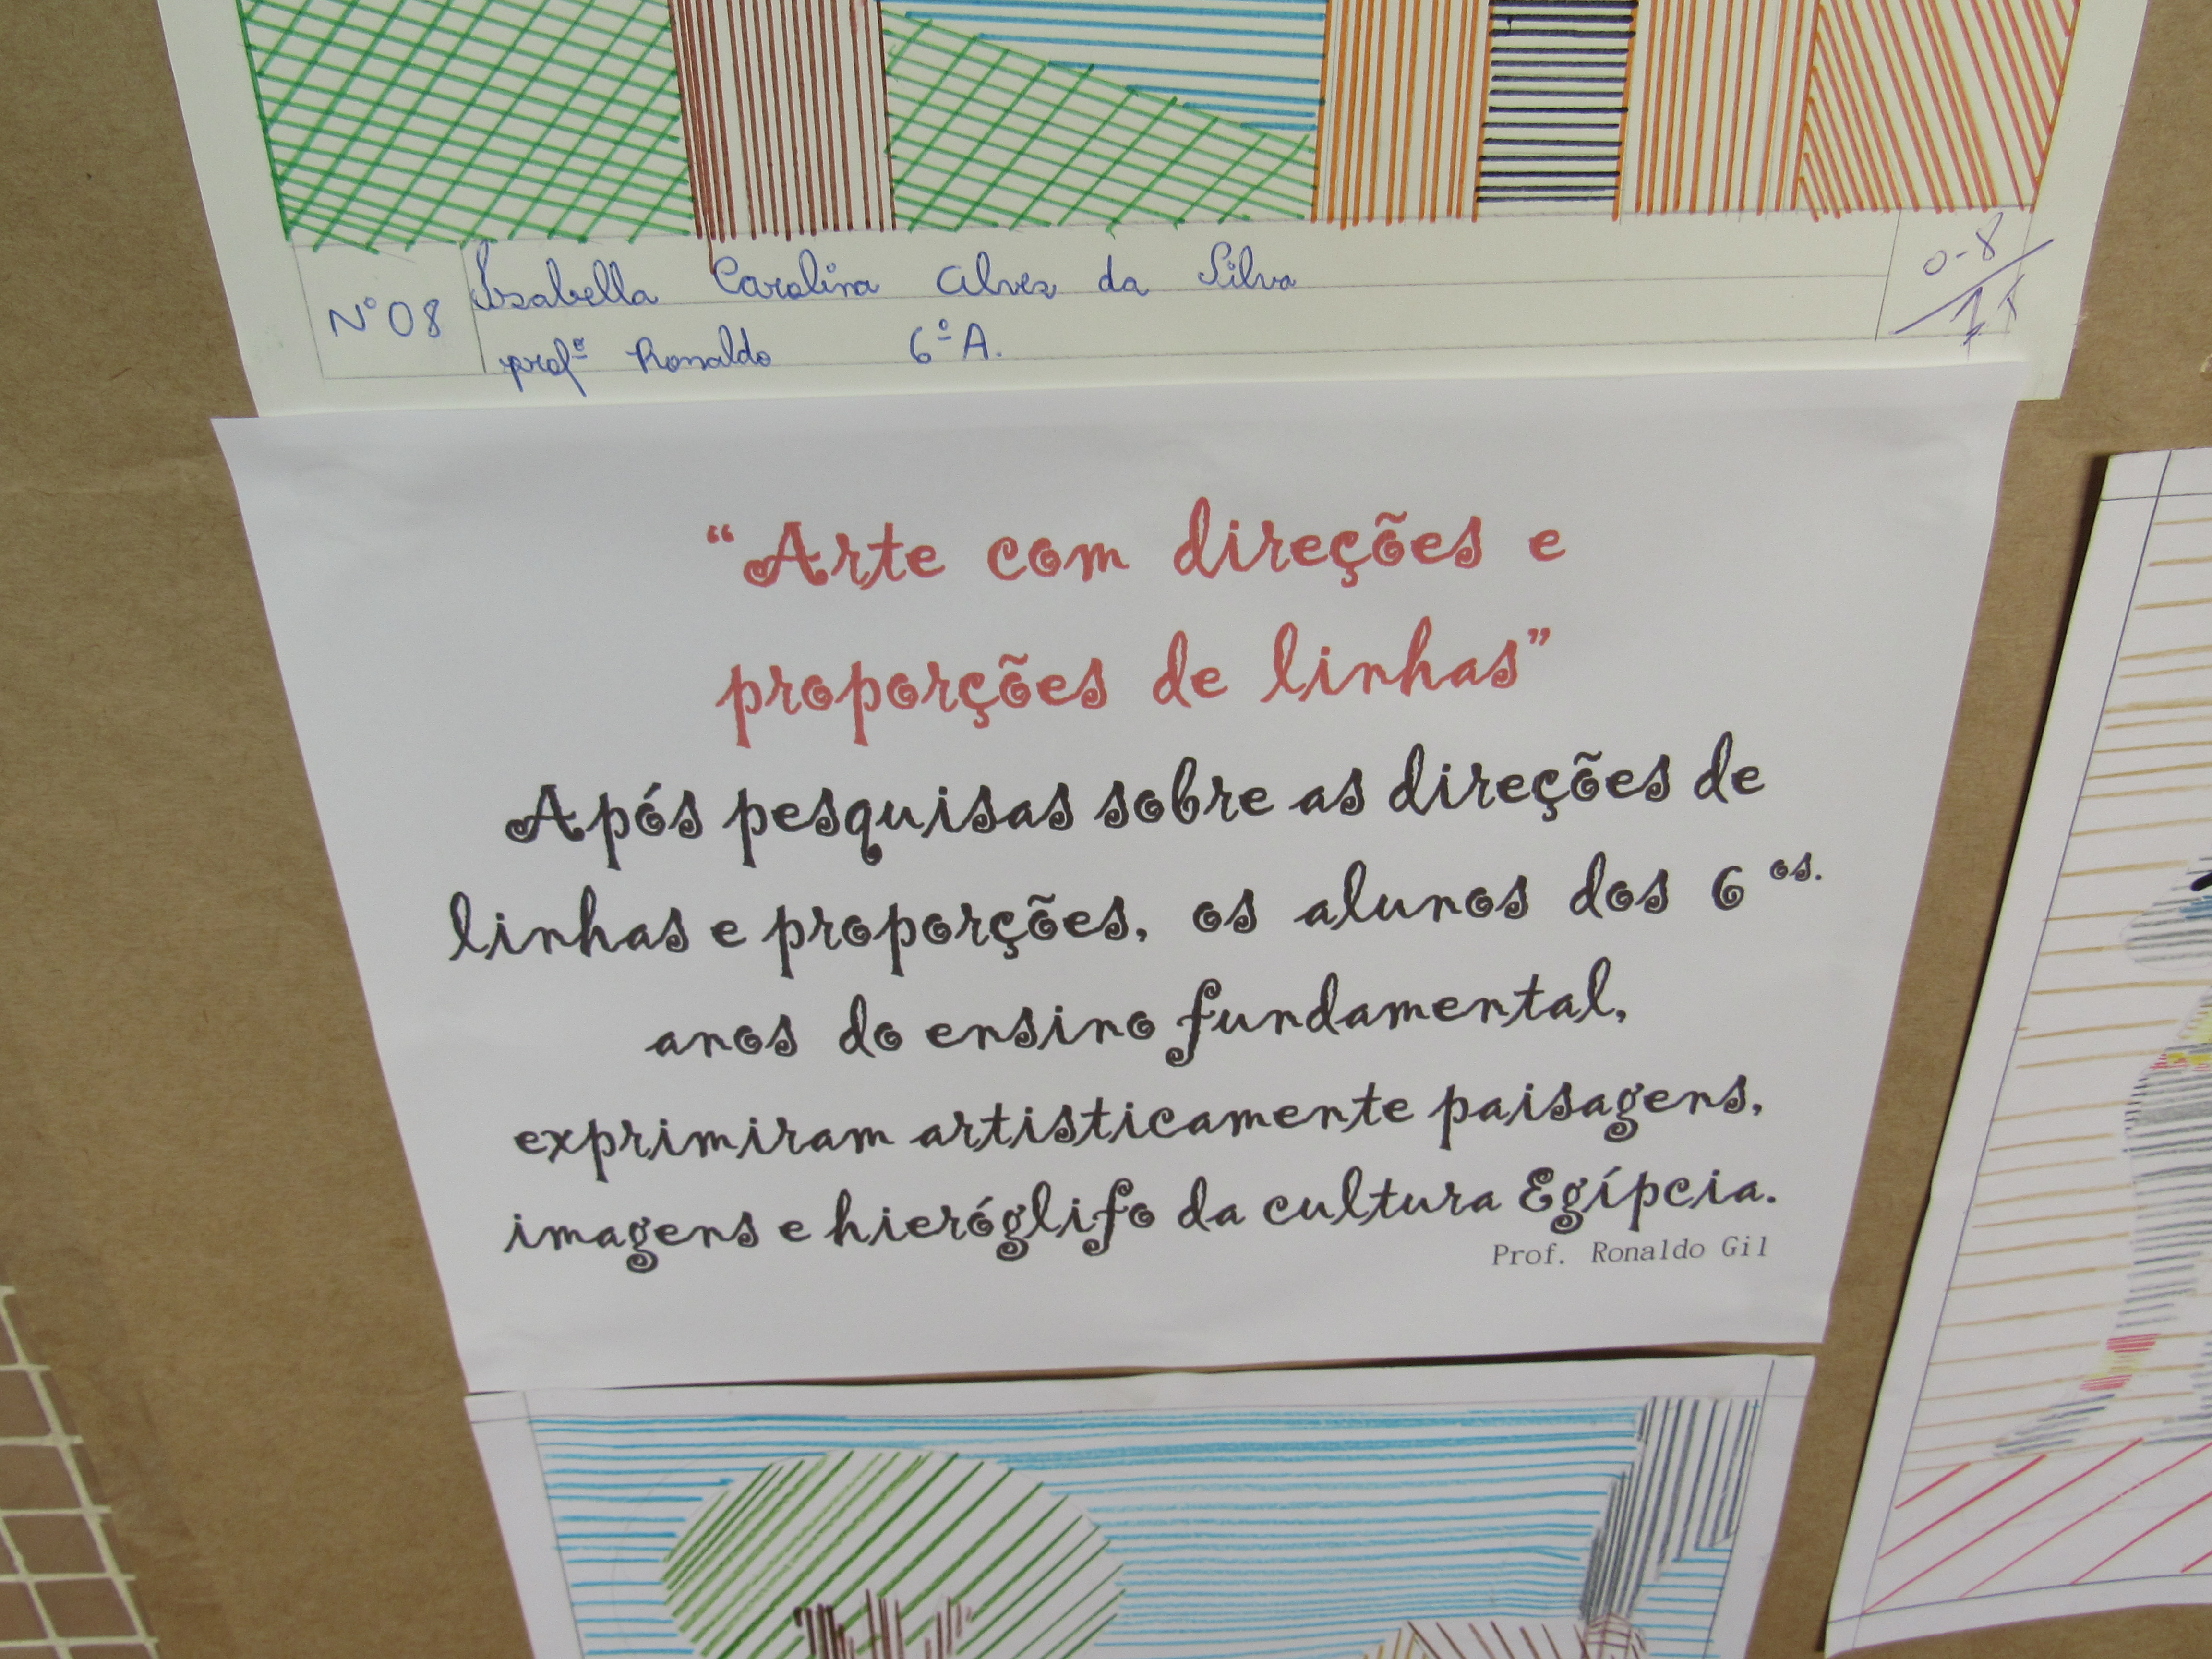 Nº 08
Isabella Carolina Alves da Silva
profº Ronaldo 6º A.
0-8
“Arte com direções e
proporções de linhas”
Após pesquisas sobre as direções de
linhas e proporções, os alunos dos 6 os.
anos do ensino fundamental,
exprimiram artisticamente paisagens,
imagens e hieróglifo da cultura Egípcia.
Prof. Ronaldo Gil